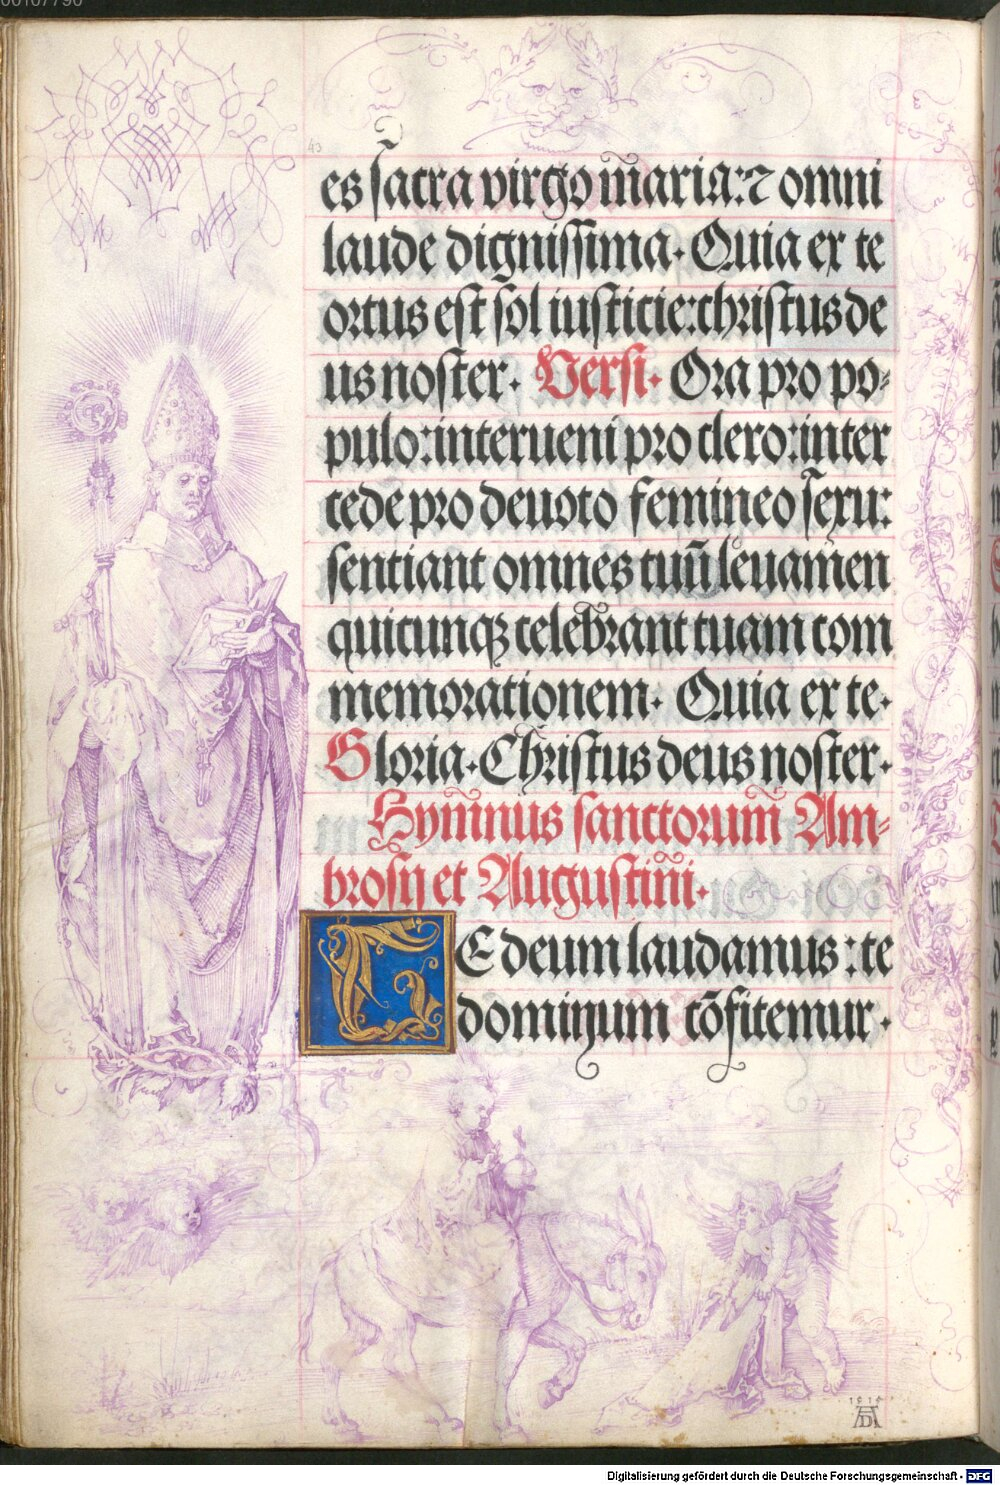 00107790
43
es sacra virgo maria: ⁊ omni
laude dignissima. Quia ex te
ortus est sol iusticie: christus de
us noster. Versi. Ora pro po⸗
pulo: interueni pro clero: inter
cede pro deuoto femineo sexu:
sentiant omnes tuū leuamen
quicunqꝫ celebrant tuam com
memorationem. Quia ex te.
Gloria. Christus deus noster.
Hymnus sanctorum Am⸗
brosij et Augustini.
TE deum laudamus: te
dominum cōfitemur.
AD
Digitalisierung gefördert durch die Deutsche Forschungsgemeinschaft - DFG